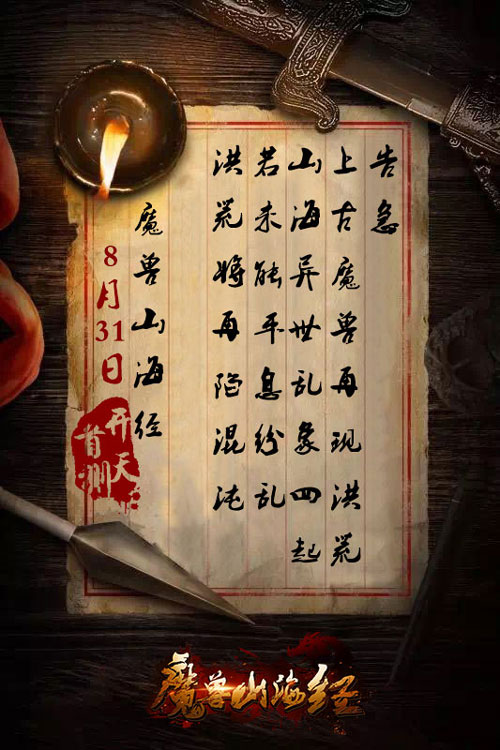 告急
上古魔兽再现洪荒
山海异世乱象四起
若未能平息纷乱
洪荒将再陷混沌
魔兽山海经
8月31日
开天
首测
魔兽山海经